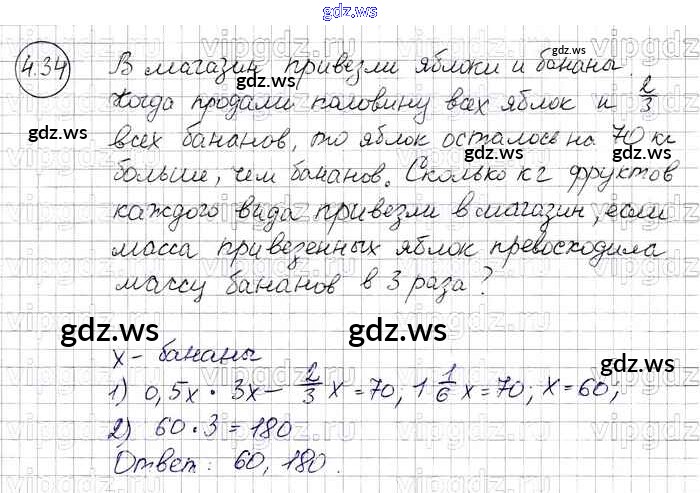 gdz.ws
4.34 В магазин привезли яблоки и бананы.
Когда продали половину всех яблок и 2/3
всех бананов, то яблок осталось на 70 кг
больше, чем бананов. Сколько кг фруктов
каждого вида привезли в магазин, если
масса привезенных яблок превосходила
массу бананов в 3 раза?
gdz.ws gdz.ws
x - бананы
1) 0,5x · 3x - 2/3 x = 70, 1 1/6 x = 70; x = 60;
2) 60 · 3 = 180
Ответ: 60, 180.
gdz.ws gdz.ws